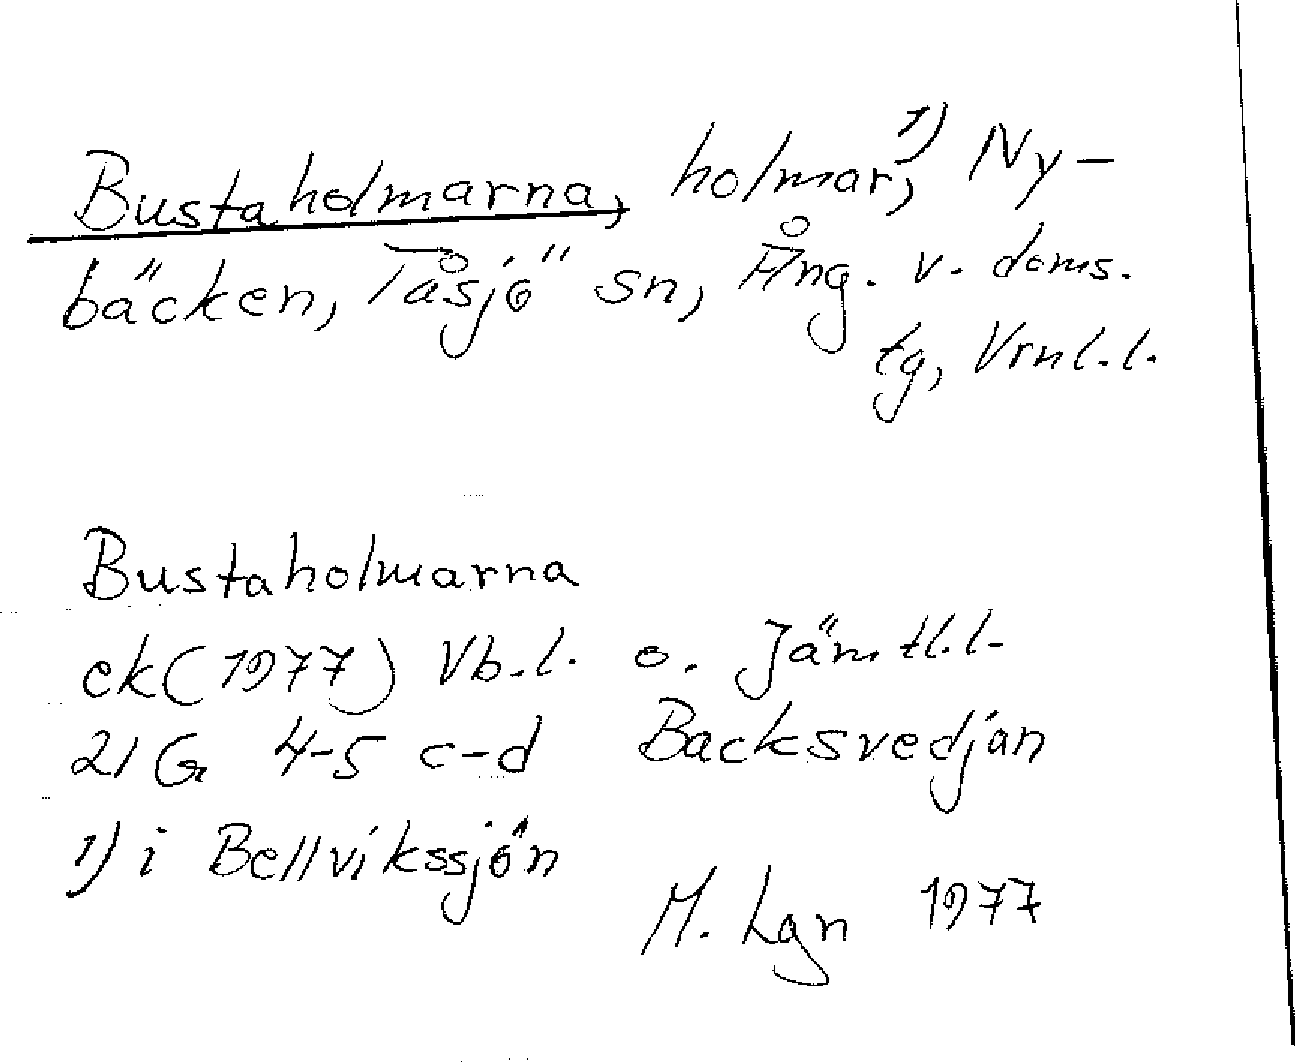 Bustaholmarna, holmar,1) Ny-
bäcken, Tåsjö sn, Ång. v. doms.
tg, Vrnl.l.
Bustaholmarna
ek (1977) Vb.l. o. Jämtl.l.
21 G 4-5 c-d Backsvedjan
1) i Bellvikssjön
M. Lgn 1977